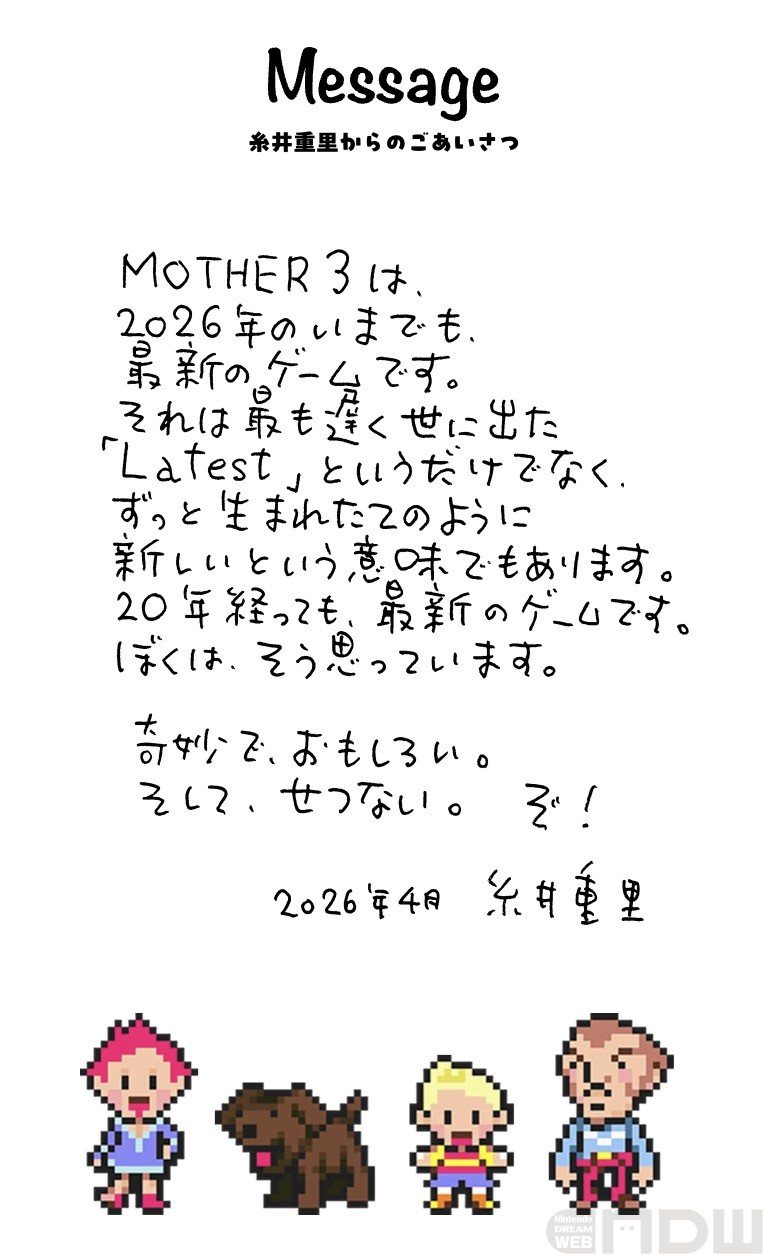 Message
糸井重里からのごあいさつ
MOTHER 3は、
2026年のいまでも、
最新のゲームです。
それは最も遅く世に出た
「Latest」というだけでなく、
ずっと生まれたてのように
新しいという意味でもあります。
20年経っても、最新のゲームです。
ぼくは、そう思っています。
奇妙で、おもしろい。
そして、せつない。 ぞ!
2026年4月 糸井重里
Nintendo
DREAM
WEB
NDW